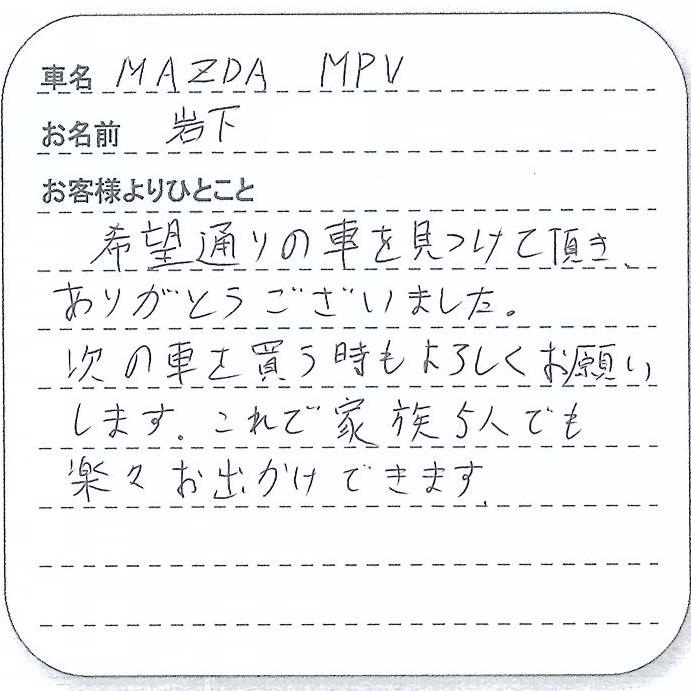 車名 MAZDA MPV
お名前 岩下
お客様よりひとこと
希望通りの車を見つけて頂き、
ありがとうございました。
次の車を買う時もよろしくお願い
します。これで家族5人でも
楽々お出かけできます。